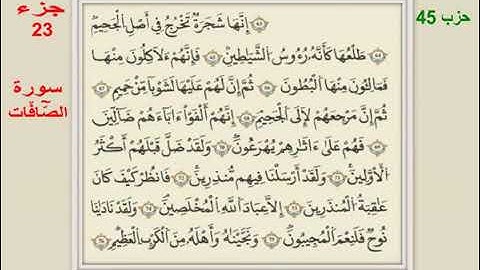 جزء
23
سورة
الصَّافَّات
حزب 45
٦٣ إِنَّهَا شَجَرَةٌ تَخْرُجُ فِي أَصْلِ الْجَحِيمِ
٦٤ طَلْعُهَا كَأَنَّهُ رُءُوسُ الشَّيَاطِينِ ٦٥ فَإِنَّهُمْ لَآكِلُونَ مِنْهَا
فَمَالِئُونَ مِنْهَا الْبُطُونَ ٦٦ ثُمَّ إِنَّ لَهُمْ عَلَيْهَا لَشَوْبًا مِنْ حَمِيمٍ ٦٧
ثُمَّ إِنَّ مَرْجِعَهُمْ لَإِلَى الْجَحِيمِ ٦٨ إِنَّهُمْ أَلْفَوْا ءَابَاءَهُمْ ضَالِّينَ
٦٩ فَهُمْ عَلَى ءَاثَارِهِمْ يُهْرَعُونَ ٧٠ وَلَقَدْ ضَلَّ قَبْلَهُمْ أَكْثَرُ
الْأَوَّلِينَ ٧١ وَلَقَدْ أَرْسَلْنَا فِيهِمْ مُنْذِرِينَ ٧٢ فَانْظُرْ كَيْفَ كَانَ
عَاقِبَةُ الْمُنْذَرِينَ ٧٣ إِلَّا عِبَادَ اللَّهِ الْمُخْلَصِينَ ٧٤ وَلَقَدْ نَادَانَا
نُوحٌ فَلَنِعْمَ الْمُجِيبُونَ ٧٥ وَنَجَّيْنَاهُ وَأَهْلَهُ مِنَ الْكَرْبِ الْعَظِيمِ ٧٦